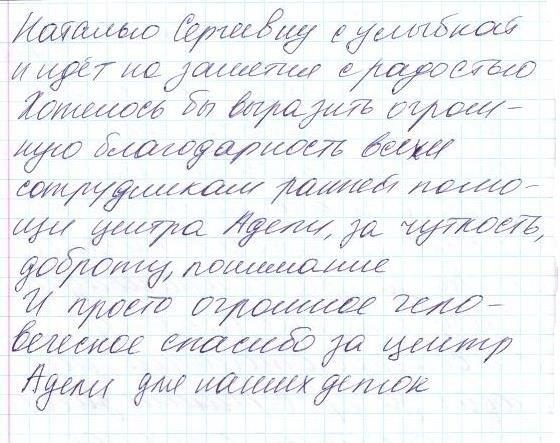 Наталью Сергеевну с улыбкой
и идёт на занятия с радостью
Хотелось бы выразить огром-
ную благодарность всем
сотрудникам ранней помо-
щи центра Адели, за чуткость,
доброту, понимание
И просто огромное чело-
веческое спасибо за центр
Адели для наших деток